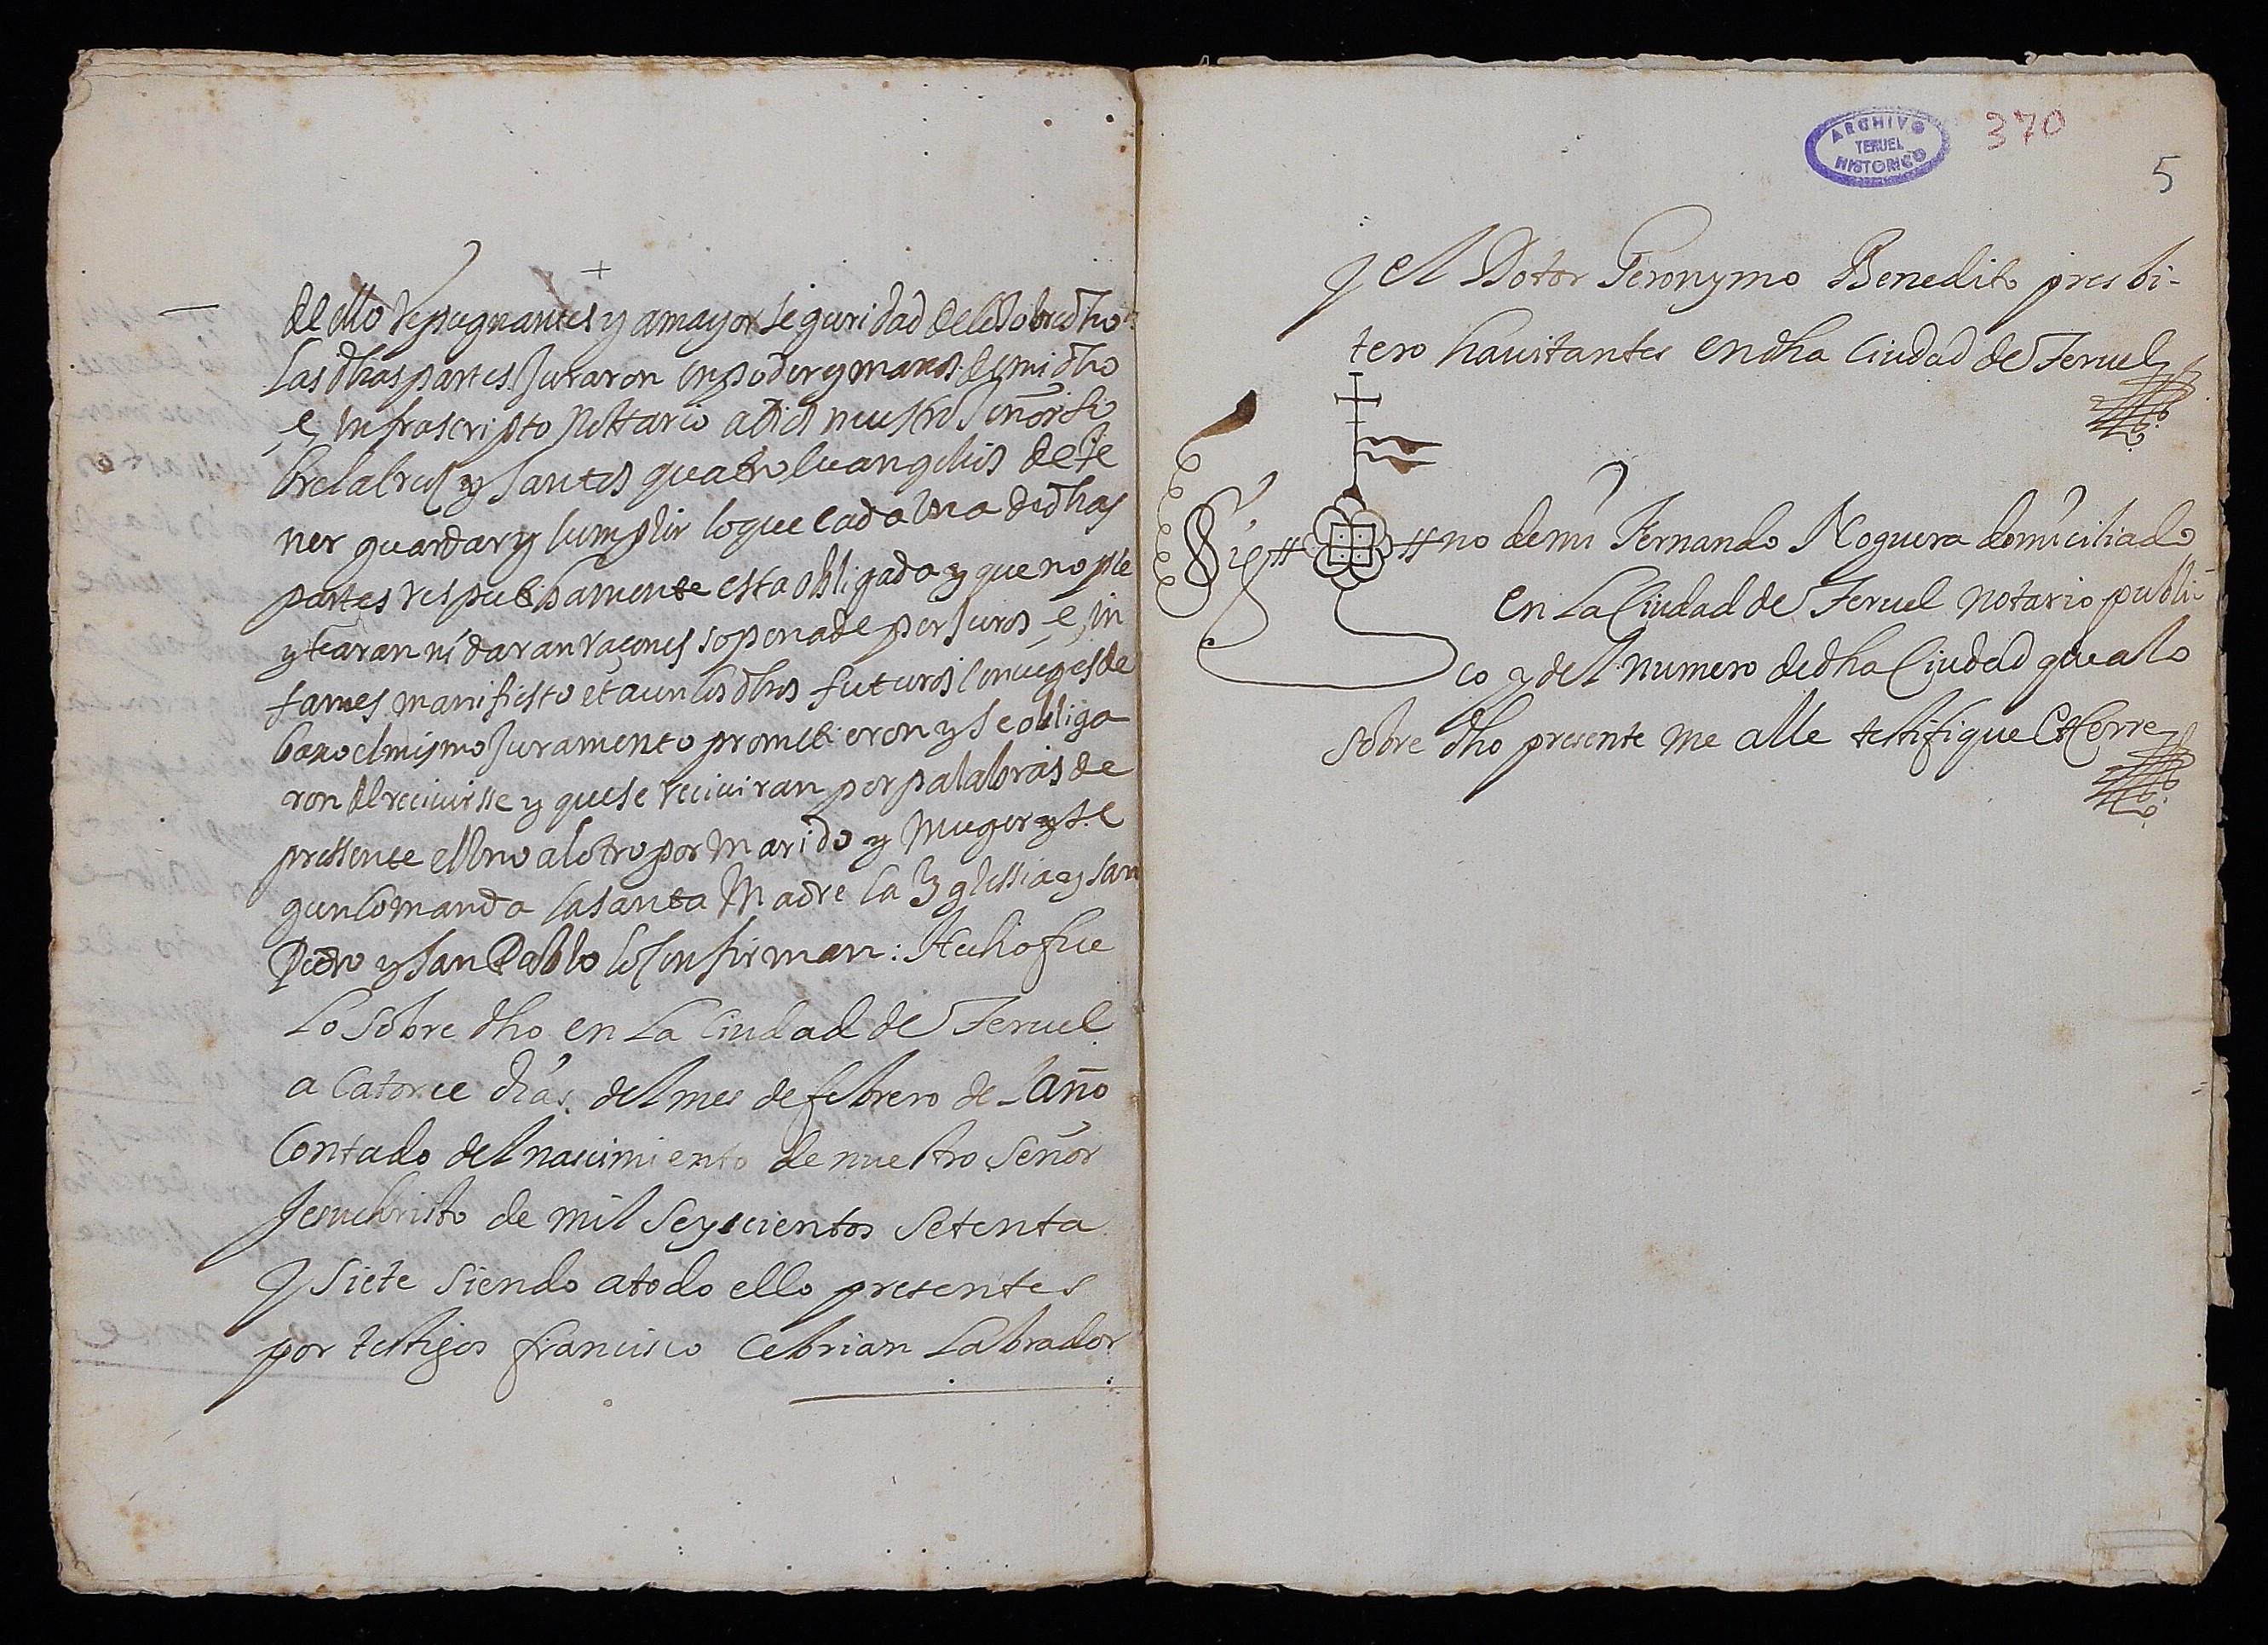 +
de ello repugnantes y a mayor seguridad de lo sobredho
las dhas partes Juraron en poder y manos de mi dho
e, infrascripto Nottario a Dios nuestro Señor so
bre la cruz y santos quatro Euangelios de te
ner guardar y cumplir lo que cada vna de dhas
partes respectibamente esta obligada y que no ple
ytearan ni daran raçones so pena de perJuros e, in
fames manifiesto et aun los dhos futuros conuuges de
baxo el mismo Juramento prometieron y se obliga
ron de reciuirsse y que se reciuiran por palabras de
pressente el vno al otro por Marido y Muger y se
gun lo manda la santa Madre la Yglessia y san
Pedro y san Pablo lo confirman: Hecho fue
Lo sobre dho en La Ciudad de Teruel
a Catorce dias del mes de febrero de Laño
Contado del nascimiento de nuestro Señor
Jesuchristo de mil Seyscientos Setenta
y Siete Siendo a todo ello presentes
por testigos francisco Cebrian Labrador
ARCHIVO
TERUEL
HISTORICO
370
5
y el Dotor Geronymo Benedito presbi-
tero hauitantes en dha Ciudad de Teruel
Sig no de mi Fernando Noguera domiciliado
en La Ciudad de Teruel notario publi-
co y del numero de dha Ciudad que a lo
sobre dho presente me alle testifique Et Cerre